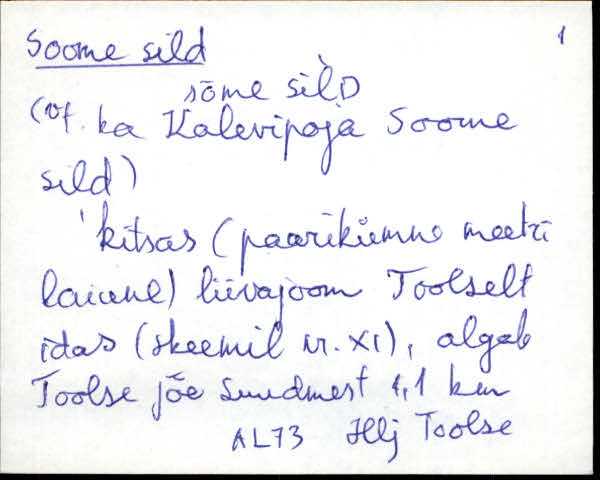 Soome sild 1
sōme sìlD
(vf. ka Kalevipoja Soome
sild)
'kitsas (paarikümne meetri
laiune) liivajoom Toolselt
idas (skeemil nr. XI), algab
Toolse jõe suudmest 1,1 km
AL73 Hlj Toolse